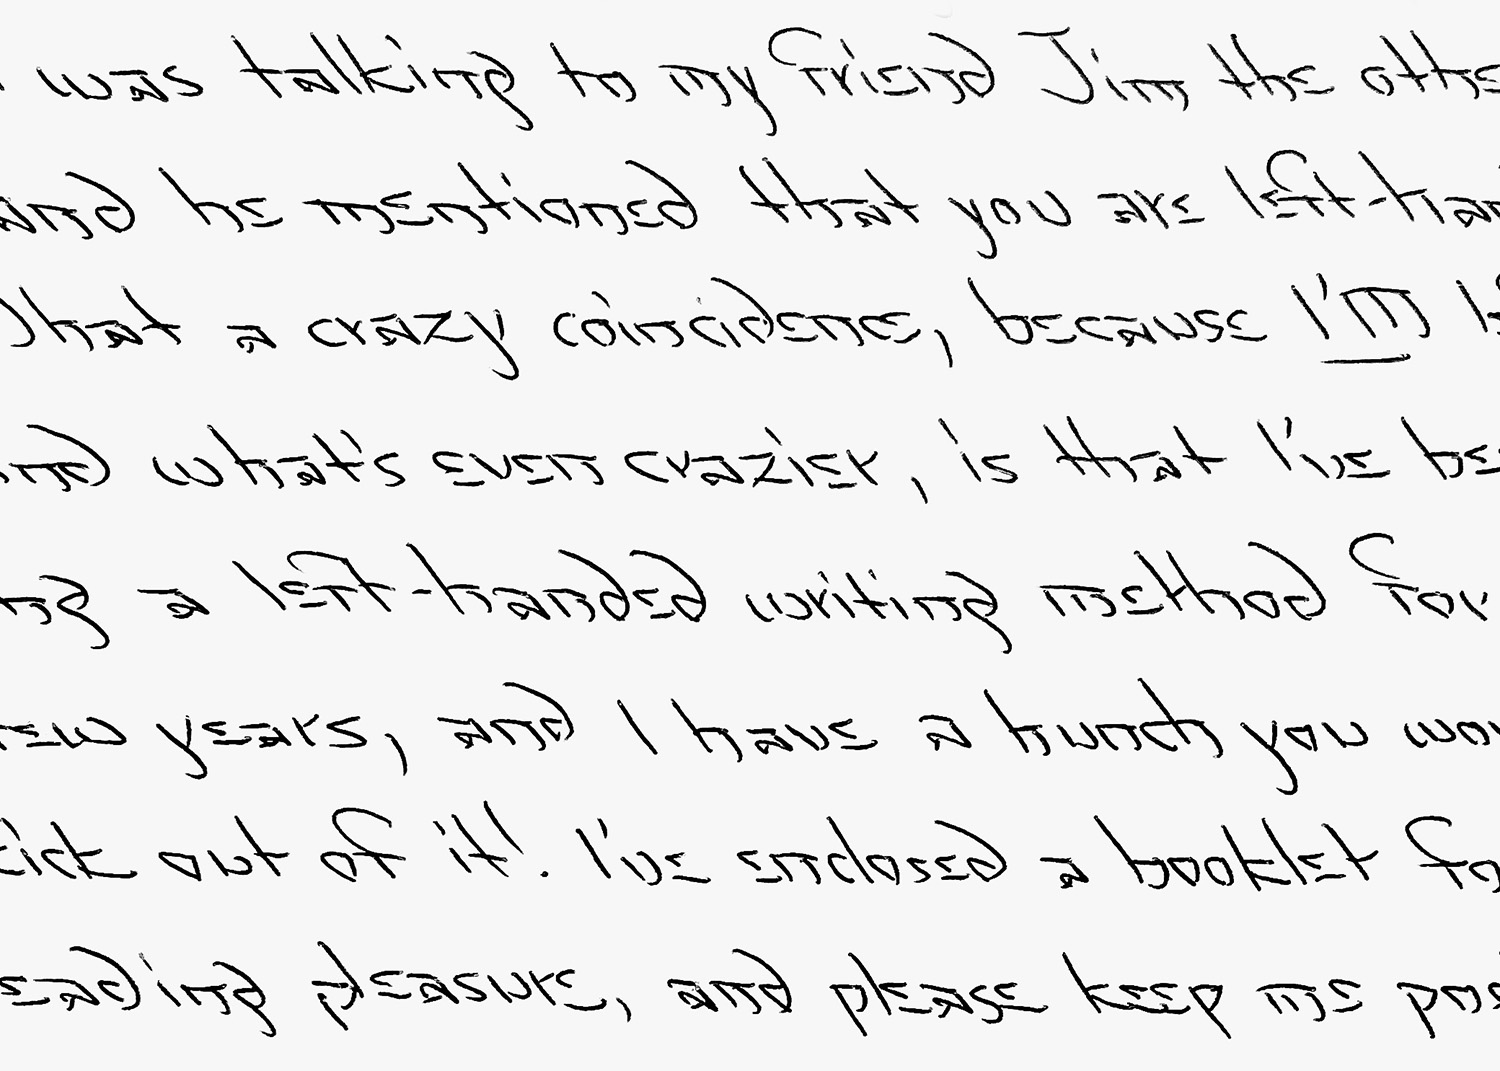 was talking to my friend Jim the othe
and he mentioned that you are left-han
hat a crazy coincidence, because I'M l
nd what's even crazier, is that I've be
ng a left-handed writing method for
few years, and I have a hunch you wou
kick out of it! I've enclosed a booklet fo
eading pleasure, and please keep me pos